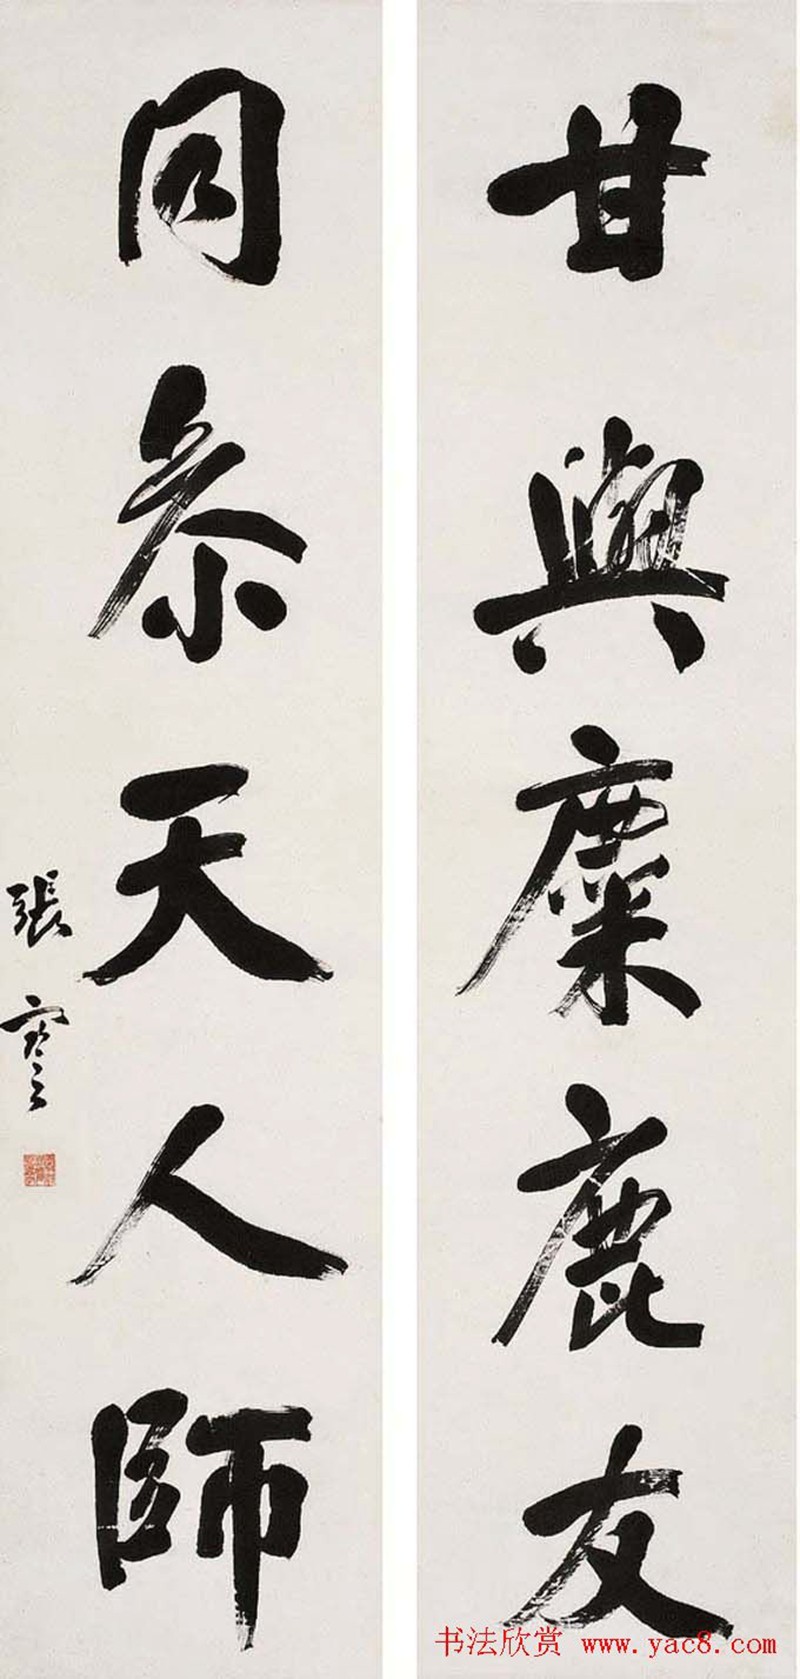 甘與麋鹿友
同叅天人師
張騫
书法欣赏 www.yac8.com